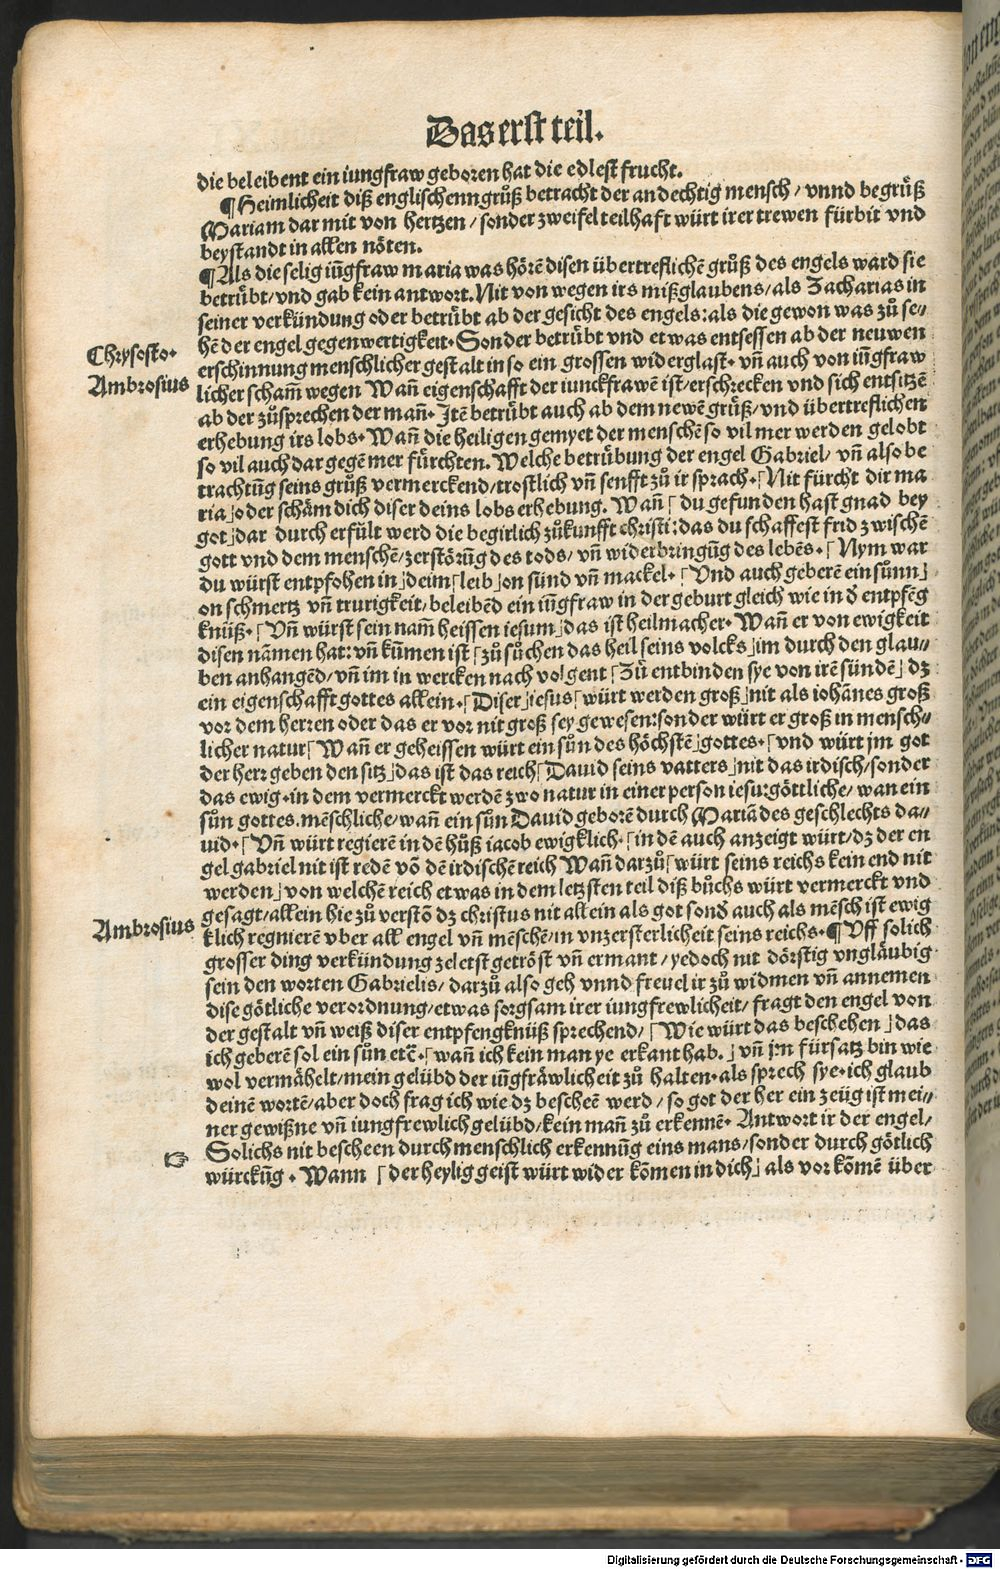 Das erst teil.
die beleibent ein iungfraw geboren hat die edlest frucht.
¶ Heimlicheit diß englischenn grůß betracht der andechtig mensch / vnnd begrüß
Mariam dar mit von hertzen / sonder zweifel teilhaft würt irer trewen fürbit vnd
beystandt in allen nöten.
¶ Als die selig iũgfraw maria was hörē disen übertreflichē grůß des engels ward sie
betrůbt / vnd gab kein antwort. Nit von wegen irs mißglaubens / als Zacharias in
seiner verkündung oder betrůbt ab der gesicht des engels: als die gewon was zů se⸗
hē der engel gegenwertigkeit. Sonder betrůbt vnd etwas entsessen ab der neuwen
Chrysosto.
erschinnung menschlicher gestalt in so ein grossen widerglast. vñ auch von iũgfraw
Ambrosius
licher scham̄ wegen Wañ eigenschafft der iunckfrawē ist / erschrecken vnd sich entsitzē
ab der zůsprechen der mañ. Itē betrůbt auch ab dem newē grůß / vnd übertreflichen
erhebung irs lobs. Wañ die heiligen gemyet der menschē so vil mer werden gelobt
so vil auch dar gegē mer fürchten. Welche betrůbung der engel Gabriel / vñ also be
trachtũg seins grůß vermerckend / trostlich vñ senfft zů ir sprach. ⌈Nit fürcht dir ma
ria⌋ oder schäm dich diser deins lobs erhebung. Wañ ⌈du gefunden hast gnad bey
got⌋ dar durch erfült werd die begirlich zůkunfft christi: das du schaffest frid zwischē
gott vnd dem menschē / zerstörũg des tods / vñ widerbringũg des lebēs. ⌈Nym war
du würst entpfohen in⌋ deim ⌈leib⌋ on sünd vñ mackel. ⌈Vnd auch geberē ein sůnn⌋
on schmertz vñ trurigkeit / beleibēd ein iũgfraw in der geburt gleich wie in d̄ entpfēg
knüß. ⌈Vñ würst sein nam̄ heissen iesum⌋ das ist heilmacher. Wañ er von ewigkeit
disen nāmen hat: vñ kūmen ist ⌈zů sůchen das heil seins volcks⌋ im durch den glau⸗
ben anhangēd / vñ im in wercken nach volgent ⌈Zů entbinden sye von irē sündē⌋ dz
ein eigenschafft gottes allein. ⌈Diser⌋ iesus ⌈würt werden groß⌋ nit als iohānes groß
vor dem herren oder das er vor nit groß sey gewesen: sonder würt er groß in mensch⸗
licher natur ⌈Wañ er geheissen würt ein sůn des höchstē⌋ gottes. ⌈vnd würt jm got
der herr geben den sitz⌋ das ist das reich ⌈Dauid seins vatters⌋ nit das irdisch / sonder
das ewig. in dem vermerckt werdē zwo natur in einer person iesu: göttliche / wan ein
sůn gottes. mēschliche / wañ ein sůn Dauid geborē durch Mariā des geschlechts da⸗
uid. ⌈Vñ würt regierē in dē hůß iacob ewigklich. ⌈in dē auch anzeigt würt / dz der en
gel gabriel nit ist redē vō dē irdischē reich Wañ darzů ⌈würt seins reichs kein end nit
werden⌋ von welchē reich etwas in dem letzsten teil diß bůchs würt vermerckt vnd
gesagt / allein hie zů verstō dz christus nit allein als got sond̄ auch als mēsch ist ewig
Ambrosius
klich regnierē vber all engel vñ mēschē / in vnzersterlicheit seins reichs. ¶ Vff solich
grosser ding verkündung zeletst getröst vñ ermant / yedoch nit dörstig vngläubig
sein den worten Gabrielis / darzů also geh vnnd freuel ir zů widmen vñ annemen
dise götliche verordnung / etwas sorgsam irer iungfrewlicheit / fragt den engel von
der gestalt vñ weiß diser entpfengknüß sprechend / ⌈Wie würt das beschehen⌋ das
ich geberē sol ein sůn etc̄. ⌈wañ ich kein man ye erkant hab.⌋ vñ jm fürsatz bin wie
wol vermähelt / mein gelübd der iũgfräwlicheit zů halten. als sprech sye. ich glaub
deinē wortē / aber doch frag ich wie dz bescheē werd / so got der her ein zeüg ist mei⸗
ner gewißne vñ iungfrewlich gelübd / kein mañ zů erkennē. Antwort ir der engel /
Solichs nit bescheen durch menschlich erkennũg eins mans / sonder durch götlich
☞
würckũg. Wann ⌈der heylig geist würt wider kōmen in dich⌋ als vor kōmē über
Digitalisierung gefördert durch die Deutsche Forschungsgemeinschaft - DFG